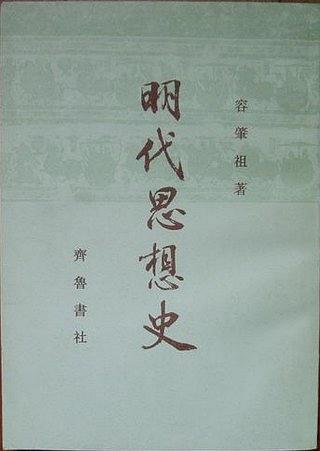 容肇祖著
明代思想史
齊魯書社